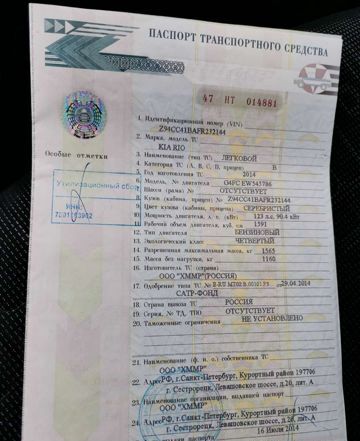 ПАСПОРТ ТРАНСПОРТНОГО СРЕДСТВА
47 НТ 014881
1. Идентификационный номер (VIN) Z94CC41BAFR232144
2. Марка, модель ТС KIA RIO
3. Наименование (тип ТС) ЛЕГКОВОЙ
4. Категория ТС (А, В, С, D, прицеп) В
5. Год изготовления ТС 2014
6. Модель, № двигателя G4FC EW543786
7. Шасси (рама) № ОТСУТСТВУЕТ
8. Кузов (кабина, прицеп) № Z94CC41BAFR232144
9. Цвет кузова (кабины, прицепа) СЕРЕБРИСТЫЙ
10. Мощность двигателя, л. с. (кВт) 123 л.с. 90.4 кВт
11. Рабочий объем двигателя, куб. см 1591
12. Тип двигателя БЕНЗИНОВЫЙ
13. Экологический класс ЧЕТВЕРТЫЙ
14. Разрешенная максимальная масса, кг 1565
15. Масса без нагрузки, кг 1160
16. Изготовитель ТС (страна)
ООО "ХММР"(РОССИЯ)
17. Одобрение типа ТС № от 29.04.2014
САТР-ФОНД
18. Страна вывоза ТС РОССИЯ
19. Серия, № ТД, ТПО ОТСУТСТВУЕТ
20. Таможенные ограничения НЕ УСТАНОВЛЕНО
21. Наименование (ф. и. о.) собственника ТС
ООО "ХММР"
22. Адрес РФ, г.Санкт-Петербург, Курортный район 197706
г. Сестрорецк, Левашовское шоссе, д.20, лит. А
23. Наименование организации, выдавшей паспорт
ООО "ХММР"
24. Адрес РФ, г.Санкт-Петербург, Курортный район 197706
г. Сестрорецк, Левашовское шоссе, д.20, лит. А
16 Июля 2014
паспорта
Особые отметки
Утилизационный сбор